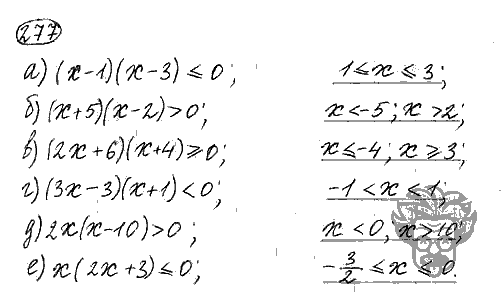 277
а) (x-1)(x-3) ≤ 0; 1 ≤ x ≤ 3;
б) (x+5)(x-2) > 0; x < -5; x > 2;
в) (2x+6)(x+4) ≥ 0; x ≤ -4; x ≥ 3;
г) (3x-3)(x+1) < 0; -1 < x ≤ 1;
д) 2x(x-10) > 0; x < 0, x > 10;
е) x(2x+3) ≤ 0; -3/2 ≤ x ≤ 0.